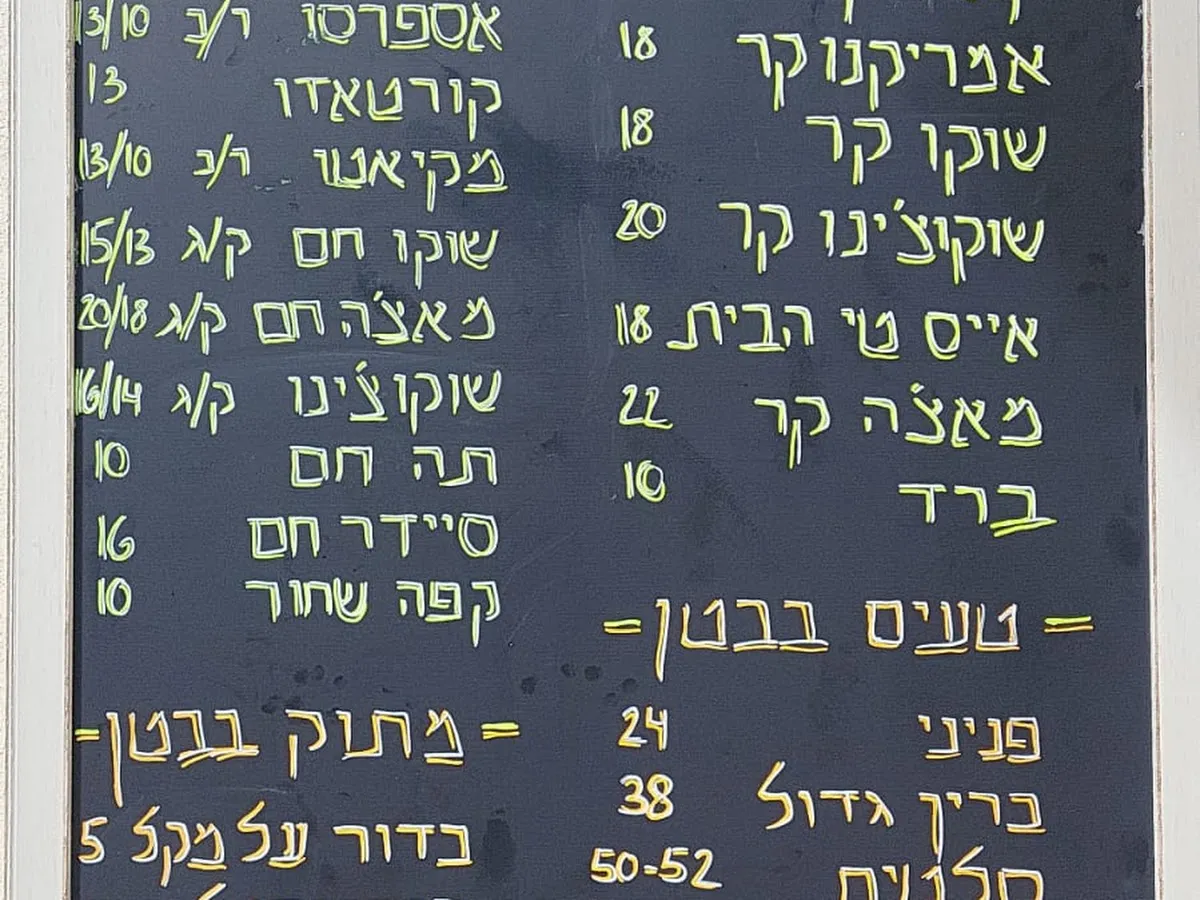 אמריקנו קר 18
שוקו קר 18
שוקוצ'ינו קר 20
אייס טי הבית 18
מאצ'ה קר 22
ברד 10
= טעים בבטן =
פניני 24
ברין גדול 38
סלטים 50-52
אספרסו ר/ב 13/10
קורטאדו 13
מקיאטו ר/ב 13/10
שוקו חם ק/ג 15/13
מאצ'ה חם ק/ג 20/18
שוקוצ'ינו ק/ג 16/14
תה חם 10
סיידר חם 16
קפה שחור 10
= מתוק בבטן -
כדור על מקל 5